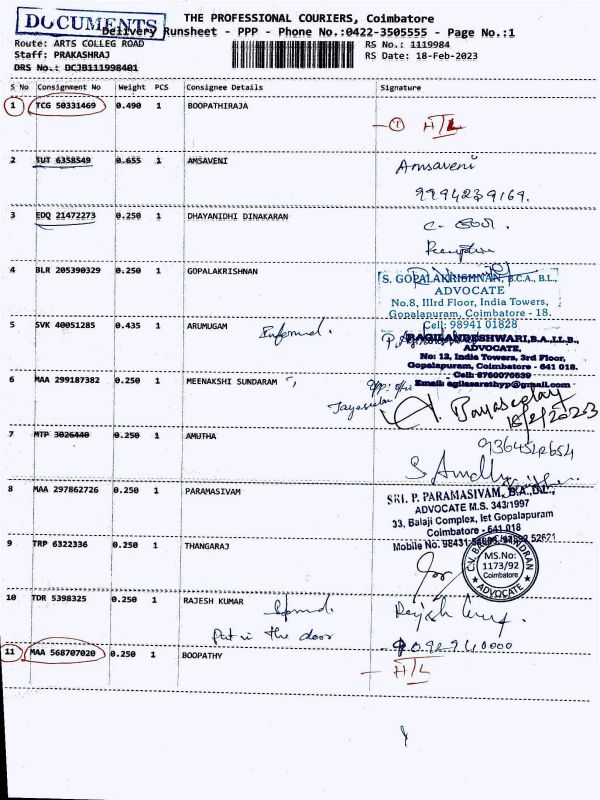 DOCUMENTS
THE PROFESSIONAL COURIERS, Coimbatore
Delivery Runsheet - PPP - Phone No.:0422-3505555 - Page No.:1
Route: ARTS COLLEG ROAD RS No.: 1119984
Staff: PRAKASHRAJ RS Date: 18-Feb-2023
DRS No.: DCJB111998401
S No Consignment No Weight PCS Consignee Details Signature
1 TCG 50331469 0.490 1 BOOPATHIRAJA
① H/L
2 TUT 6358549 0.655 1 AMSAVENI Amsaveni
9994239169.
3 EDQ 21472273 0.250 1 DHAYANIDHI DINAKARAN
4 BLR 205390329 0.250 1 GOPALAKRISHNAN
S. GOPALAKRISHNAN, B.C.A., B.L.,
ADVOCATE
No.8, IIIrd Floor, India Towers,
Gopalapuram, Coimbatore - 18.
Cell: 98941 01828
5 SVK 40051285 0.435 1 ARUMUGAM Informed.
P. RAGILANDESHWARI,B.A.,LL.B.,
ADVOCATE,
No: 12, India Towers, 3rd Floor,
Gopalapuram, Coimbatore - 641 018.
Cell: 8760076639
Email: agilasarathyp@gmail.com
6 MAA 299187382 0.250 1 MEENAKSHI SUNDARAM
18/2/2023
7 MTP 3026440 0.250 1 AMUTHA
9364542654
S. Amudha
8 MAA 297862726 0.250 1 PARAMASIVAM
SRI. P. PARAMASIVAM, B.A.,B.L.,
ADVOCATE M.S. 343/1997
33, Balaji Complex, Ist Gopalapuram
Coimbatore - 641 018
Mobile No. 98431
9 TRP 6322336 0.250 1 THANGARAJ
MS.No:
1173/92
Coimbatore
ADVOCATE
for
10 TDR 5398325 0.250 1 RAJESH KUMAR Informed.
Put in the door
11 MAA 568707020 0.250 1 BOOPATHY
H/L